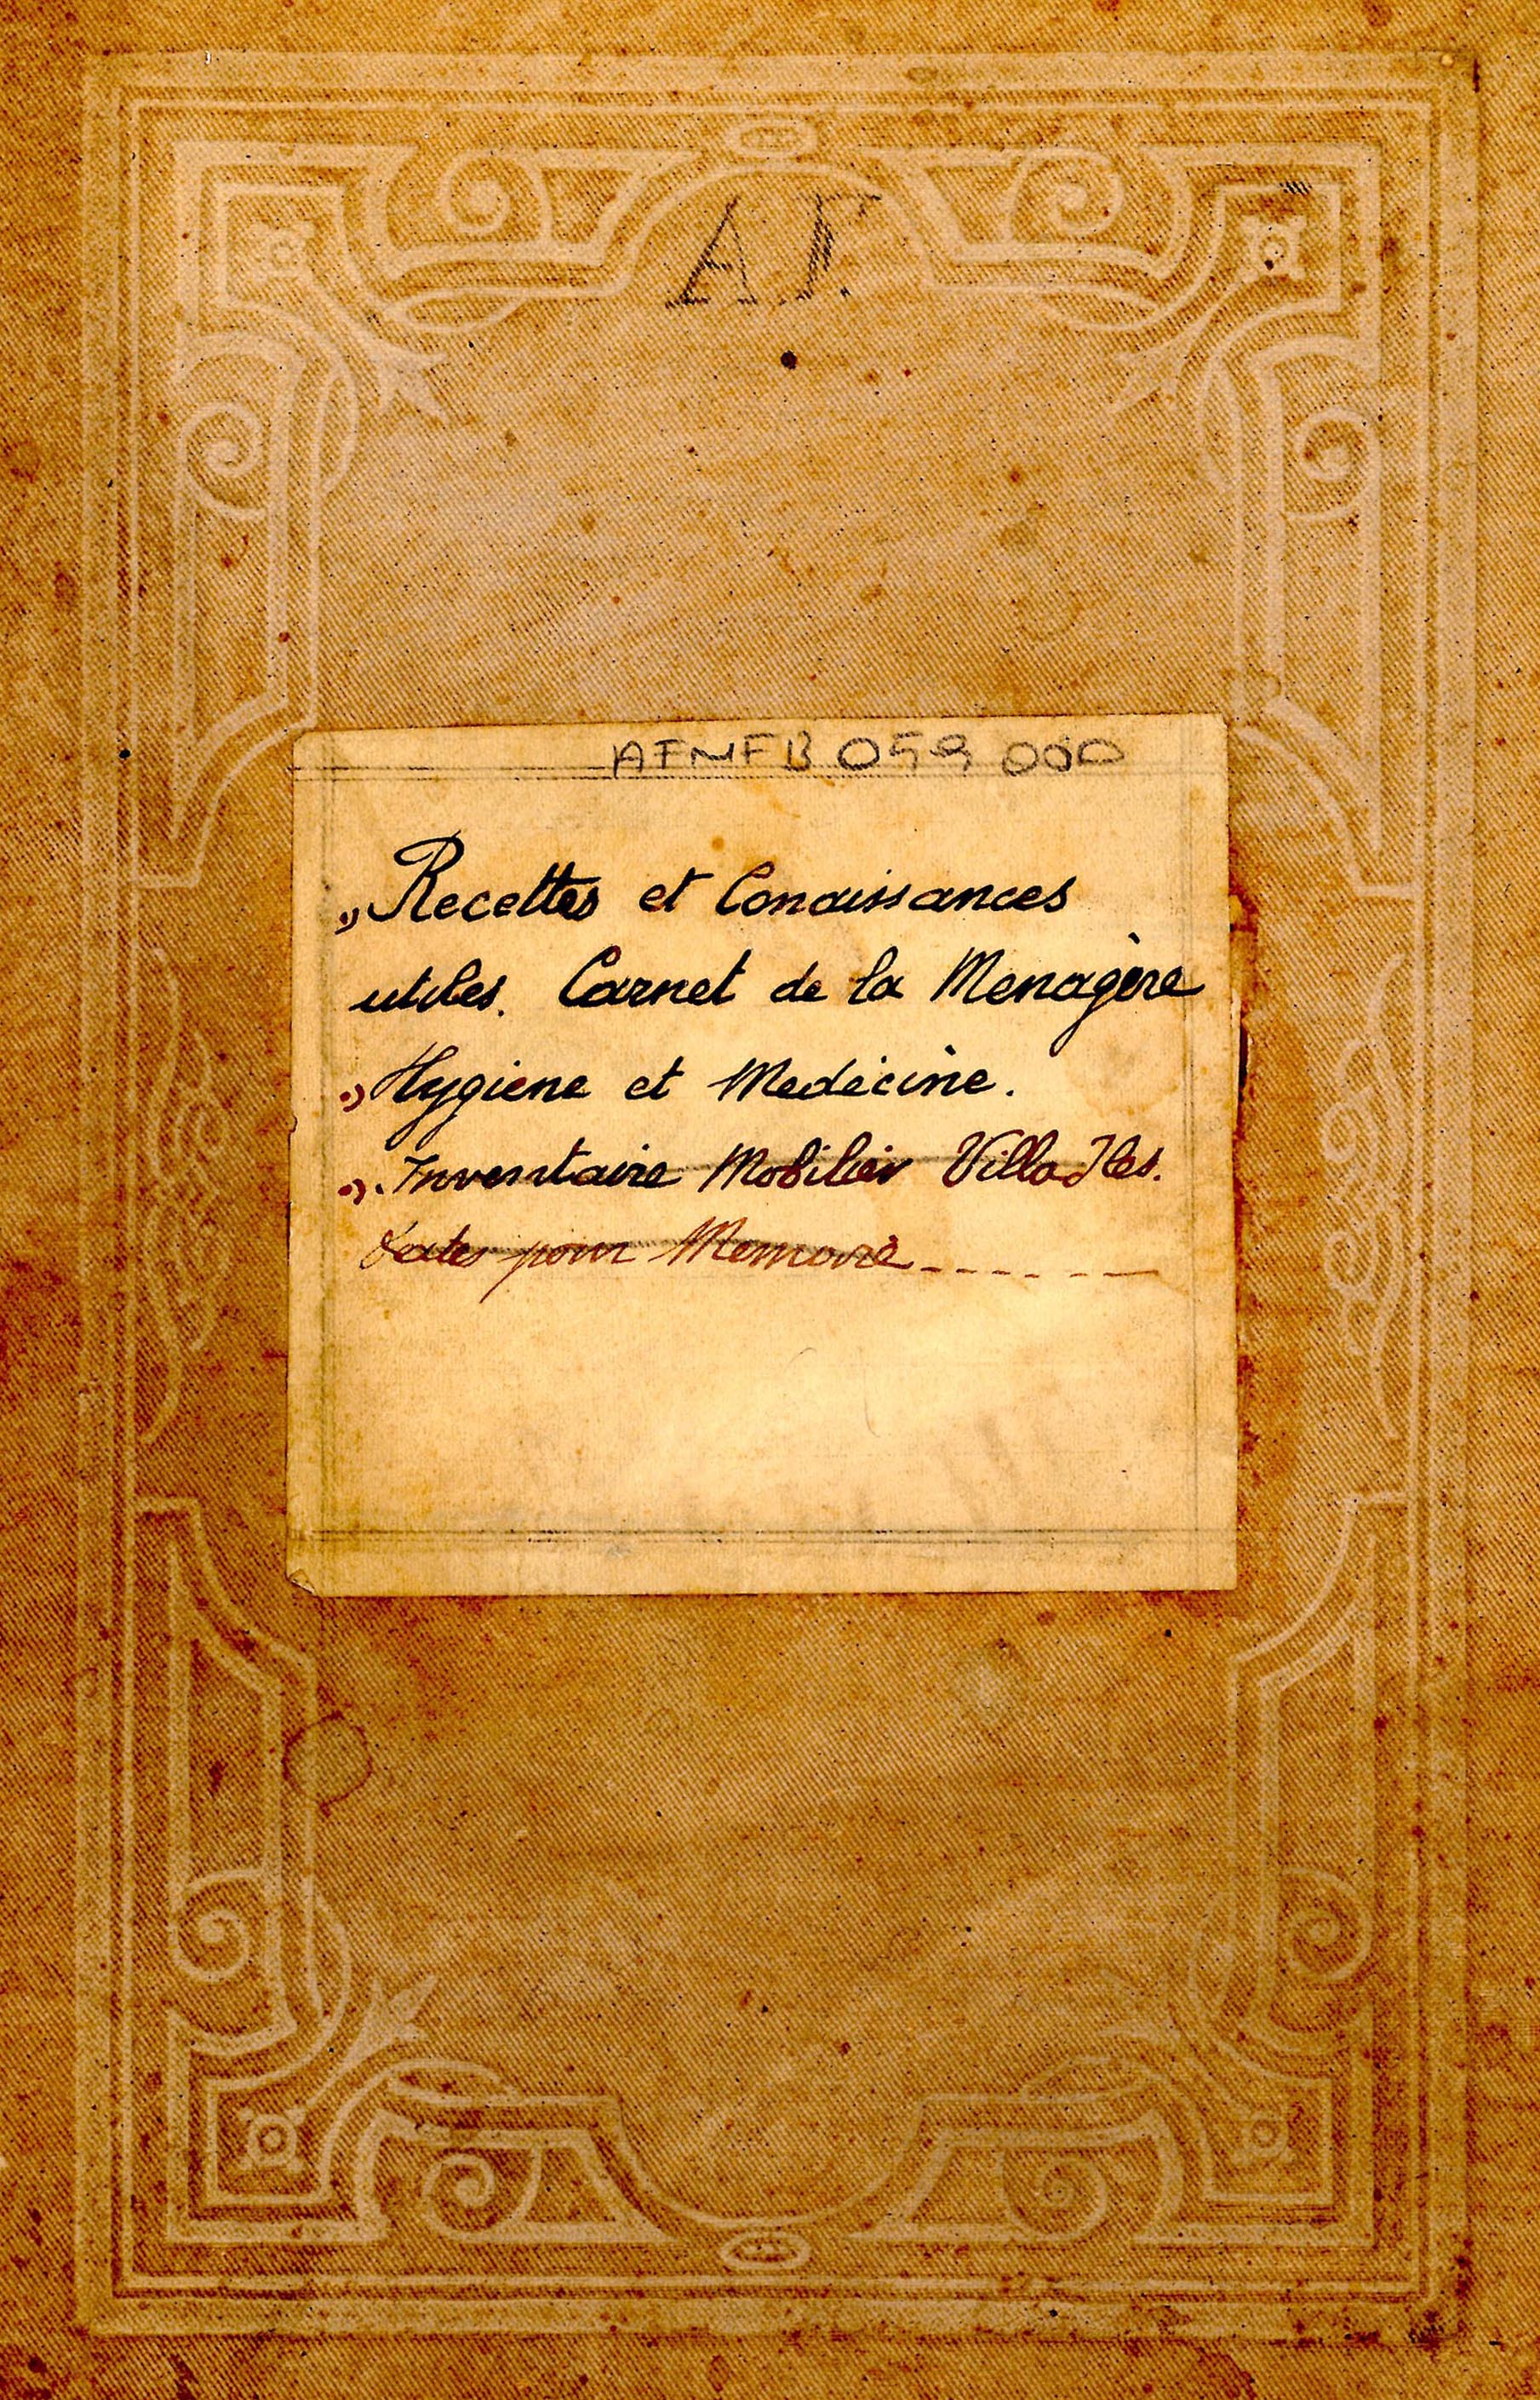 A.F.
AFMFB 059 000
Recettes et Conaissances
utiles. Carnet de la Menagère
Hygiene et Medecine.
Inventaire Mobilier Villa Iles.
Dates pour Memoire